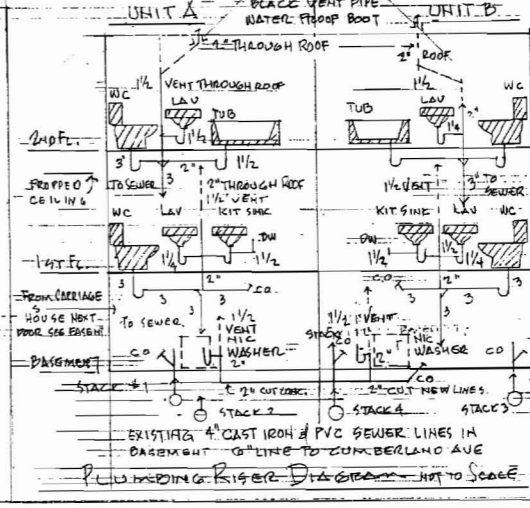 UNIT A
BLACK VENT PIPE
WATER PROOF BOOT
UNIT B
THROUGH ROOF
2" ROOF
1 1/2
VENT THROUGH ROOF
1 1/2
WC
LAV
TUB
TUB
LAV
WC
1 1/2
1 1/4
2ND FL.
3"
2"
1 1/2
1 1/2 VENT
3"
DROPPED
CEILING
TO SEWER
3
2" THROUGH ROOF
1 1/2 VENT
TO
SEWER
WC
LAV
KIT SINK
KIT SINK
LAV
WC
DW
DW
1ST FL.
1 1/4
1 1/2
1 1/2
1 1/4
FROM CARRIAGE
HOUSE NEXT
DOOR SEE EASEMT
3
3
2"
3
CO
CO
3
2"
3
3
TO SEWER
1 1/2
VENT
NIC
WASHER
2"
1 1/2 VENT
NIC
WASHER
2"
BASEMENT
CO
CO
CO
STACK #1
2" CUT CONC.
2" CUT NEW LINES.
STACK 2
STACK 4
STACK 3
EXISTING 4" CAST IRON & PVC SEWER LINES IN
BASEMENT 6" LINE TO CUMBERLAND AVE
PLUMBING RISER DIAGRAM NOT TO SCALE